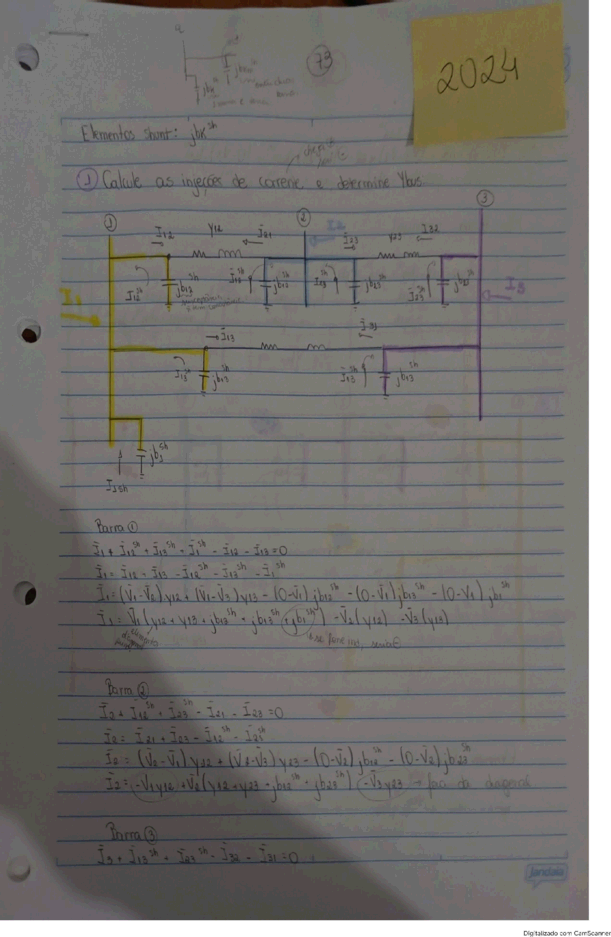 73
2024
Elementos shunt: jbk^sh
① Calcule as injeções de corrente e determine Ybus.
① ② ③
I12 y12 I21 I2 I23 y23 I32
I1 I12^sh jb12^sh I12^sh jb12^sh I23^sh jb23^sh I23^sh jb23^sh I3
I13 I31
I13^sh jb13^sh I13^sh jb13^sh
jb1^sh
I1sh
Barra ①
Ī1 + Ī12^sh + Ī13^sh + Ī1^sh - Ī12 - Ī13 = 0
Ī1 = Ī12 - Ī13 - Ī12^sh - Ī13^sh - Ī1^sh
Ī1 = (V̄1-V̄2) y12 + (V̄1-V̄3) y13 - (0-V̄1) jb12^sh - (0-V̄1) jb13^sh - (0-V̄1) jb1^sh
Ī1 = V̄1 (y12 + y13 + jb12^sh + jb13^sh + jb1^sh) - V̄2 (y12) - V̄3 (y13)
Barra ②
Ī2 + Ī12^sh + Ī23^sh - Ī21 - Ī23 = 0
Ī2 = Ī21 + Ī23 - Ī12^sh - Ī23^sh
Ī2 = (V̄2-V̄1) y12 + (V̄2-V̄3) y23 - (0-V̄2) jb12^sh - (0-V̄2) jb23^sh
Ī2 = -V̄1 y12 + V̄2 (y12 + y23 + jb12^sh + jb23^sh) - V̄3 y23 → fora da diagonal
Barra ③
Ī3 + Ī13^sh + Ī23^sh - Ī32 - Ī31 = 0
jandaia
Digitalizado com CamScanner